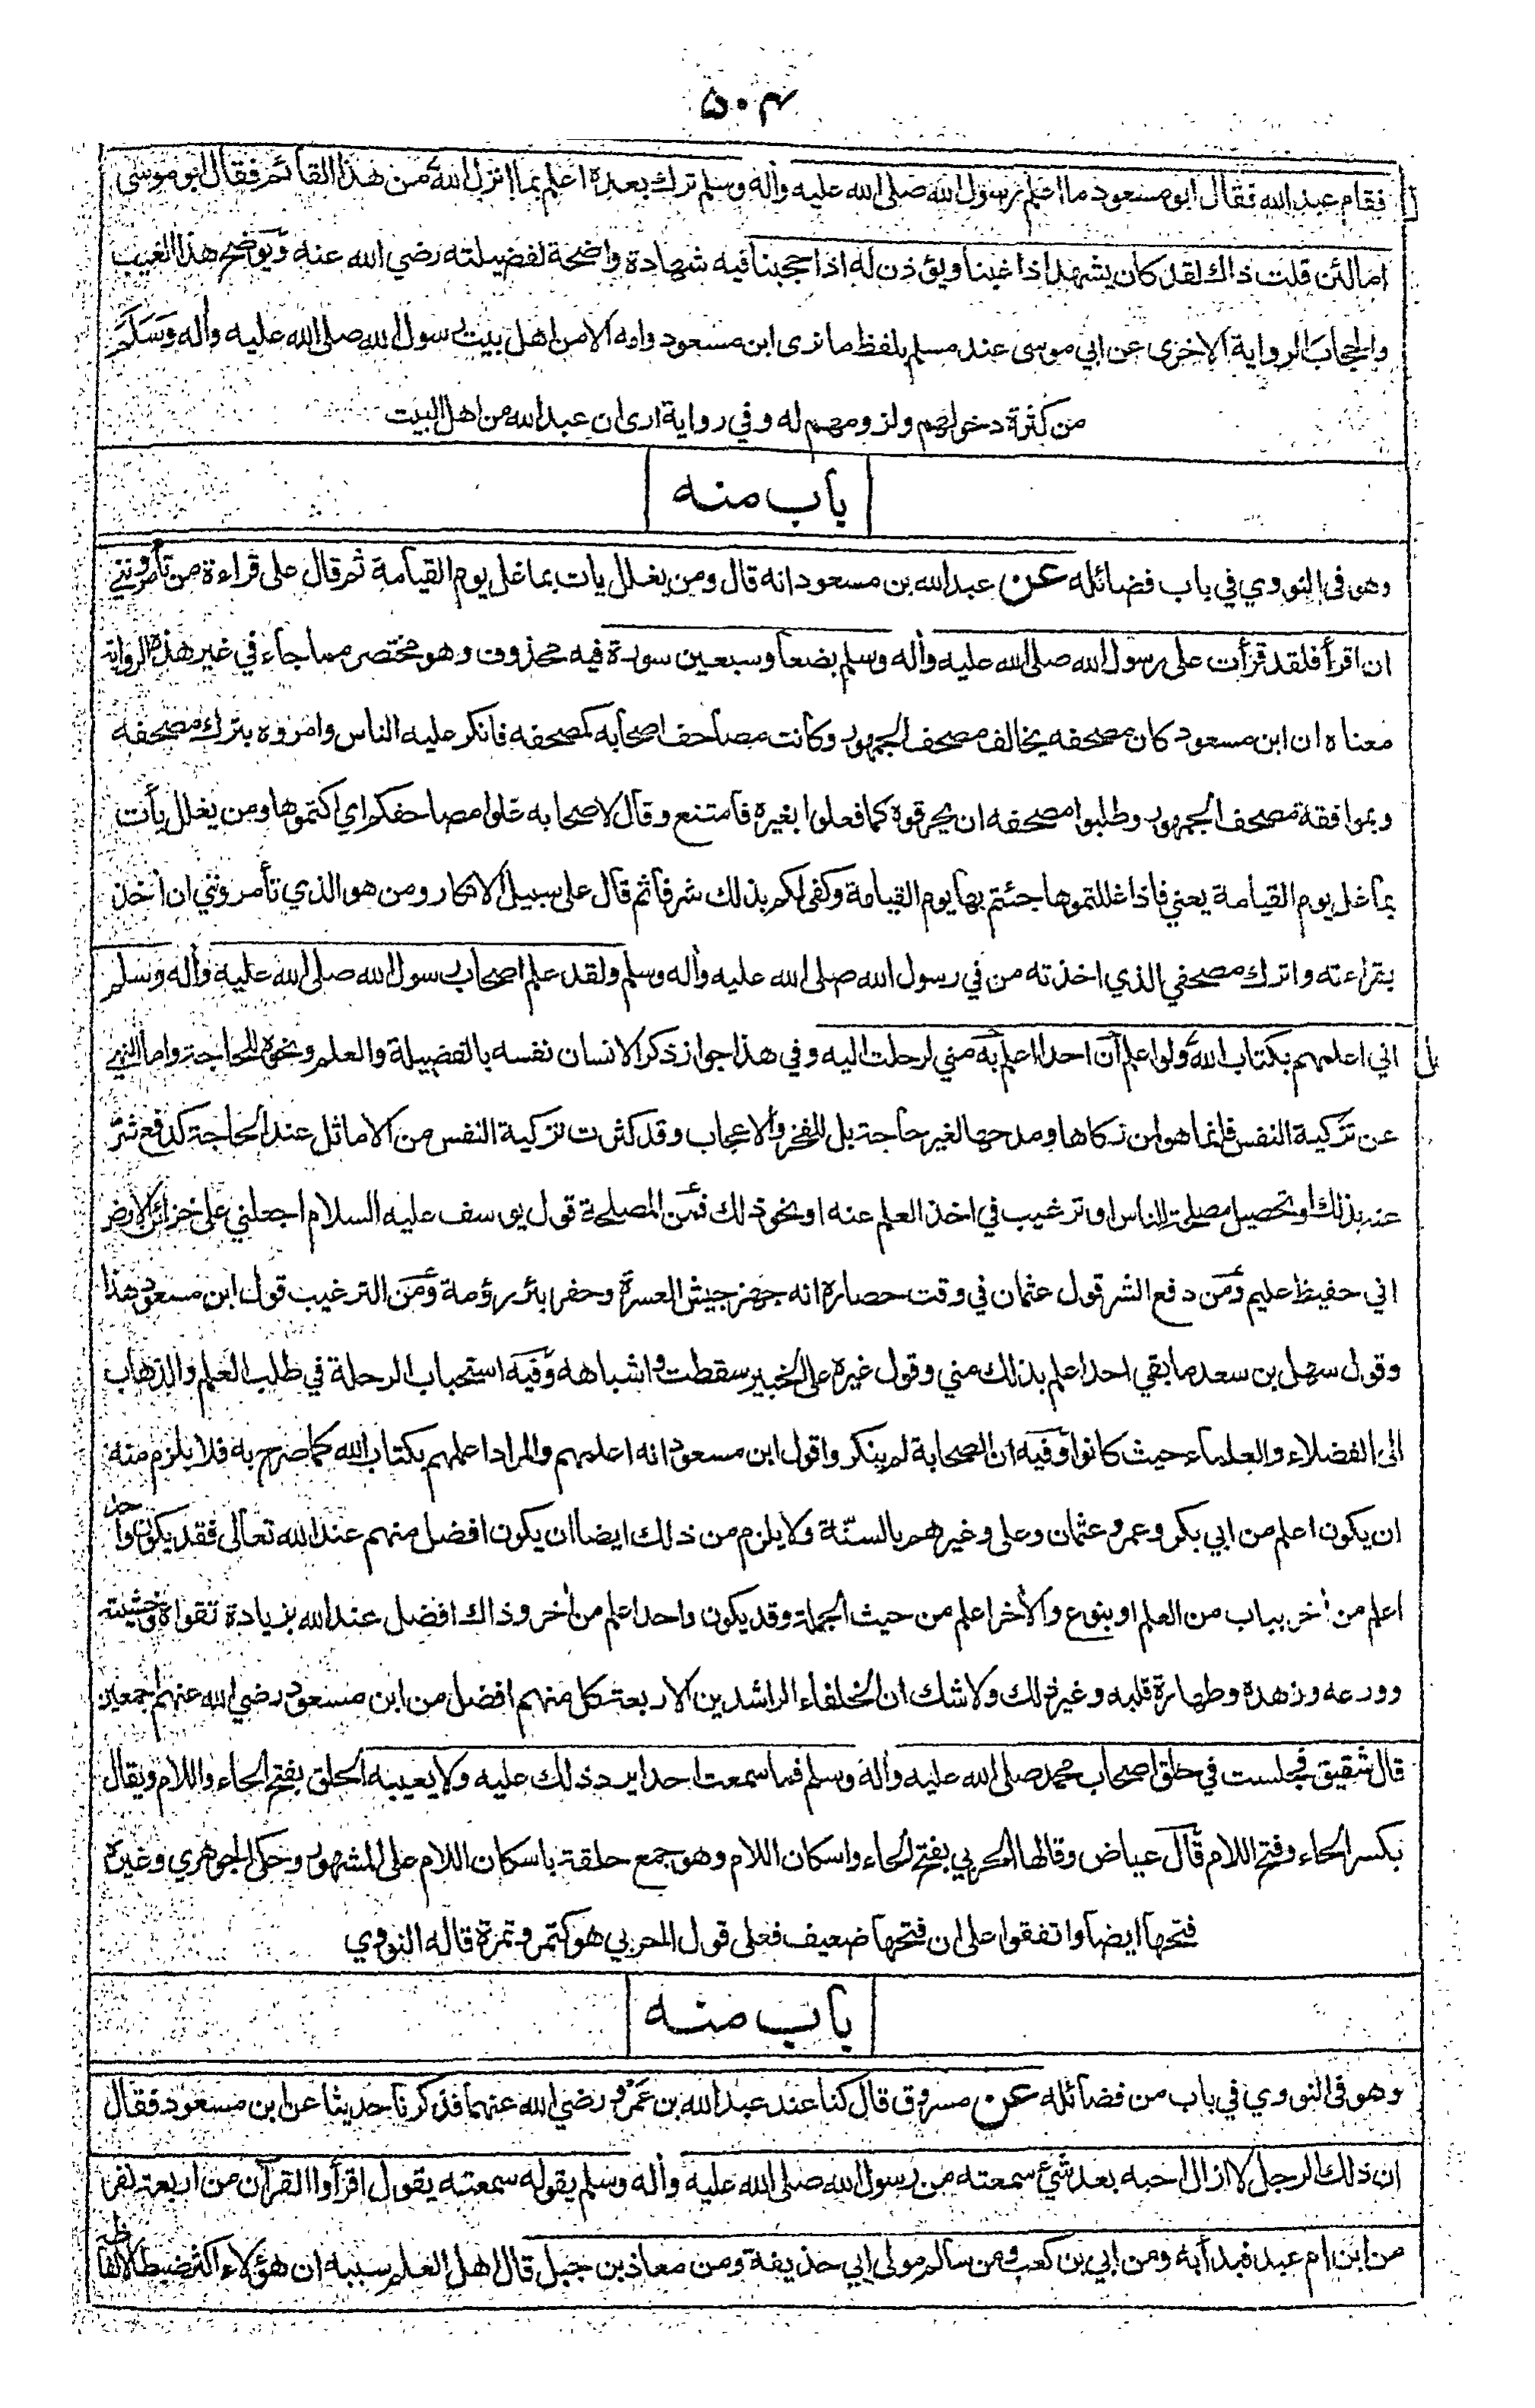 ۵۰۴
فقام عبد الله فقال ابو مسعود ما اعلم رسول الله صلى الله عليه وأله وسلم ترك بعده اعلم بما انزل الله من هذا القائم فقال ابو موسى
اما لئن قلت ذاك لقد كان يشهد اذا غبنا ويؤذن له اذا حجبنا فيه شهادة واضحة لفضيلته رضي الله عنه ويوضح هذا الغيب
والحجاب الرواية الاخرى عن ابي موسى عند مسلم بلفظ ما نرى ابن مسعود وامه الا من اهل بيت رسول الله صلى الله عليه وأله وَسَلَّمَ
من كثرة دخولهم ولزومهم له وفي رواية ارى ان عبد الله من اهل البيت
باب منه
وهو في النووي في باب فضائله عن عبد الله بن مسعود انه قال ومن يغلل يات بما غل يوم القيامة ثم قال على قراءة من تأمرونني
ان اقرأ فلقد قرأت على رسول الله صلى الله عليه وأله وسلم بضعا وسبعين سورة فيه محذوف وهو مختصر مما جاء في غير هذه الرواية
معناه ان ابن مسعود كان مصحفه يخالف مصحف الجمهور وكانت مصاحف اصحابه كمصحفه فانكر عليه الناس وامروه بترك مصحفه
وبموافقة مصحف الجمهور وطلبوا مصحفه ان يحرقوه كما فعلوا بغيره فامتنع وقال لاصحابه غلوا مصاحفكم اي اكتموها ومن يغلل يأت
بما غل يوم القيامة يعني فاذا غللتموها جئتم بها يوم القيامة وكفى لكم بذلك شرفا ثم قال على سبيل الانكار ومن هو الذي تأمرونني ان أخذ
بقراءته واترك مصحفي الذي اخذته من في رسول الله صلى الله عليه وأله وسلم ولقد علم اصحاب رسول الله صلى الله عليه وأله وسلم
اني اعلمهم بكتاب الله ولو اعلم أن احدا اعلم به مني لرحلت اليه وفي هذا جواز ذكر الانسان نفسه بالفضيلة والعلم ونحوه للحاجة واما النهي
عن تزكية النفس فانما هو لمن زكاها ومدحها لغير حاجة بل للفخر والاعجاب وقد كثرت تزكية النفس من الاماثل عند الحاجة كدفع شرّ
عنه بذلك او تحصيل مصلحة للناس او ترغيب في اخذ العلم عنه او نحو ذلك فمن المصلحة قول يوسف عليه السلام اجعلني على خزائن الارض
اني حفيظ عليم ومن دفع الشر قول عثمان في وقت حصاره انه جهز جيش العسرة وحفر بئر رؤمة ومن الترغيب قول ابن مسعود هذا
وقول سهل بن سعد ما بقي احد اعلم بذلك مني وقول غيره على الخبير سقطت واشباهه وفيه استحباب الرحلة في طلب العلم والذهاب
الى الفضلاء والعلماء حيث كانوا وفيه ان الصحابة لم ينكروا قول ابن مسعود انه اعلمهم والمراد اعلمهم بكتاب الله كما صرح به فلا يلزم منه
ان يكون اعلم من ابي بكر وعمر وعثمان وعلى وغيرهم بالسنّة ولا يلزم من ذلك ايضا ان يكون افضل منهم عند الله تعالى فقد يكون واحد
اعلم من أخر بباب من العلم او بنوع والأخر اعلم من حيث الجملة وقد يكون واحد اعلم من أخر وذاك افضل عند الله بزيادة تقواه وخشيته
وورعه وزهده وطهارة قلبه وغير ذلك ولا شك ان الخلفاء الراشدين الاربعة كل منهم افضل من ابن مسعود رضي الله عنهم اجمعين
قال شقيق فجلست في حلق اصحاب محمد صلى الله عليه وأله وسلم فما سمعت احدا يرد ذلك عليه ولا يعيبه الحلق بفتح الحاء واللام ويقال
بكسر الحاء وفتح اللام قال عياض وقالها الحربي بفتح الحاء واسكان اللام وهو جمع حلقة باسكان اللام على المشهور وحكى الجوهري وغيره
فتحها ايضا واتفقوا على ان فتحها ضعيف فعلى قول الحربي هو كتمر وتمرة قاله النووي
باب منه
وهو في النووي في باب من فضائله عن مسروق قال كنا عند عبد الله بن عَمْرو رضي الله عنهما فذكرنا حديثا عن ابن مسعود فقال
ان ذلك الرجل لا ازال احبه بعد شئ سمعته من رسول الله صلى الله عليه وأله وسلم يقوله سمعته يقول اقرأوا القرآن من اربعة نفر
من ابن ام عبد فبدأ به ومن ابي بن كعب ومن سالم مولى ابي حذيفة ومن معاذ بن جبل قال اهل العلم سببه ان هؤلاء اكثر ضبطا لالفاظه